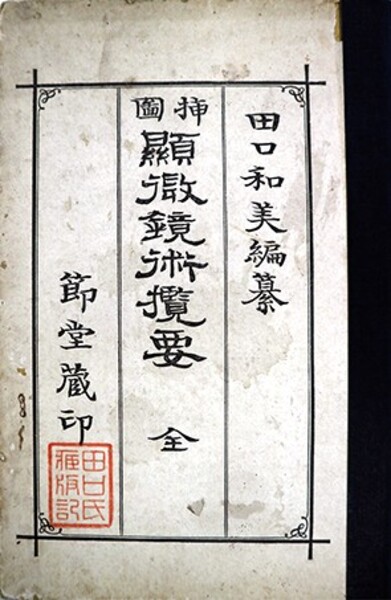 田口和美編纂
挿圖
顯微鏡術攬要 全
節堂藏印
田口氏
版記